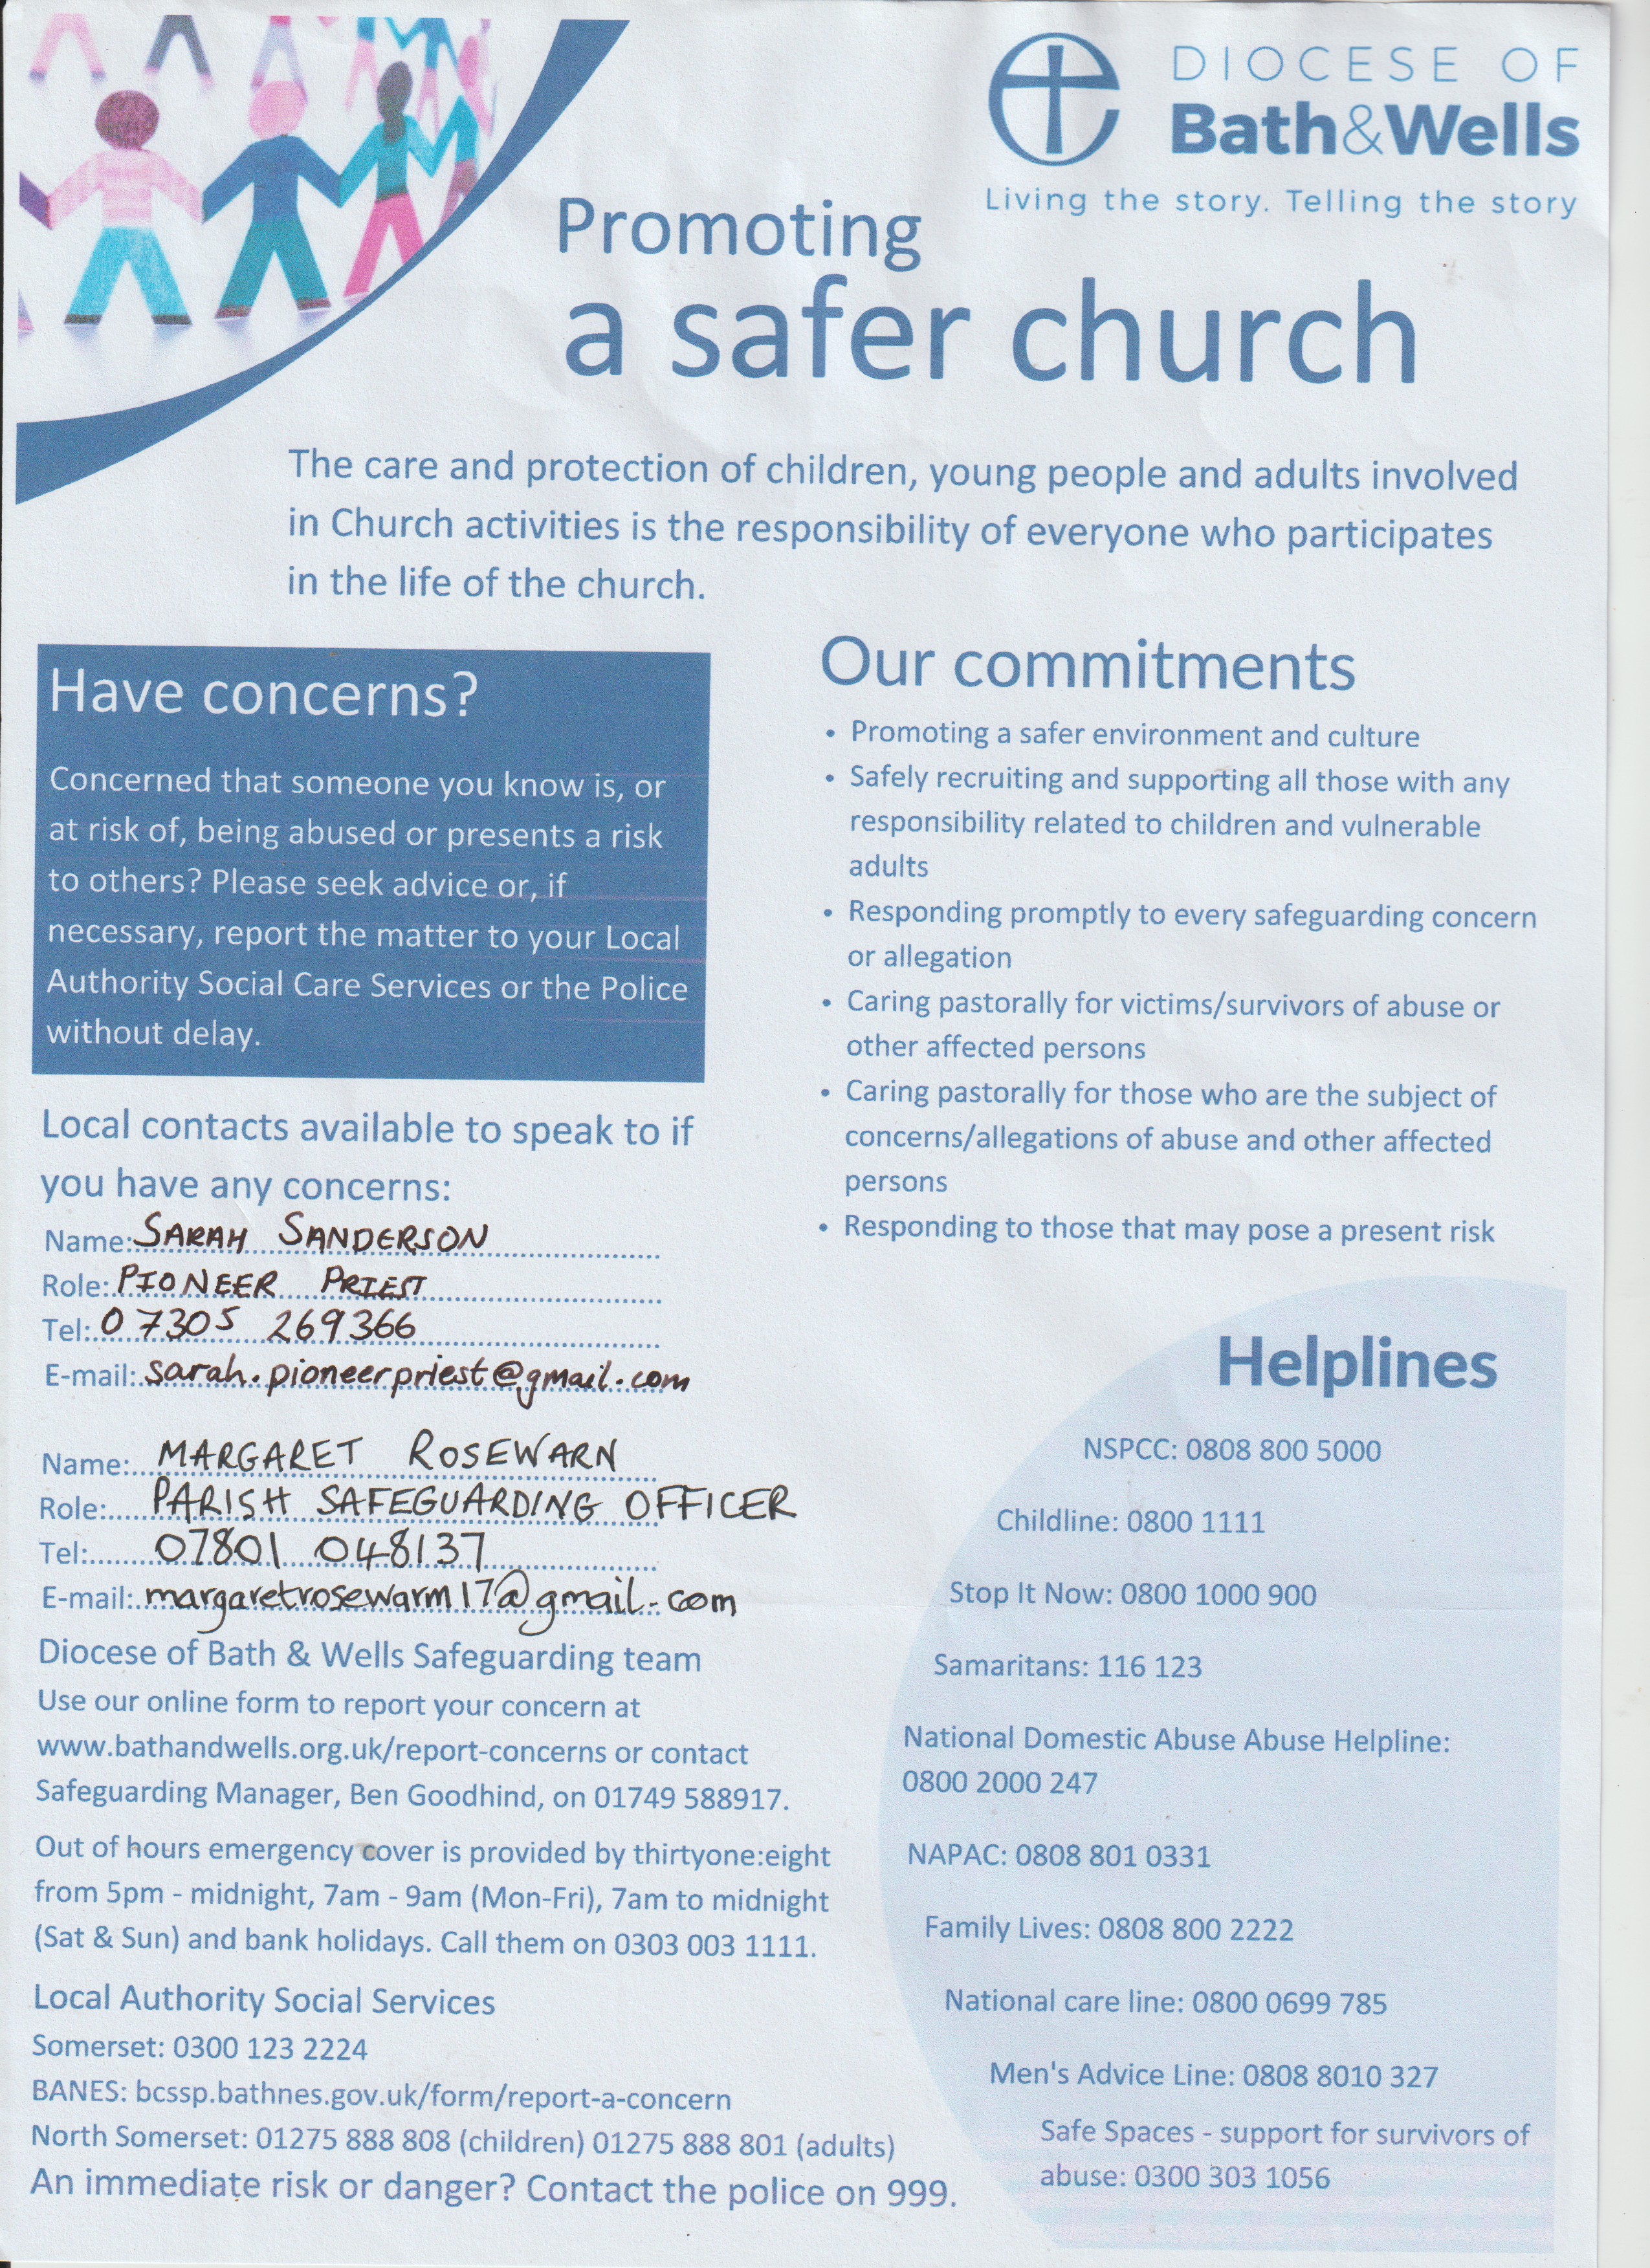 DIOCESE OF
Bath&Wells
Living the story. Telling the story
Promoting
a safer church
The care and protection of children, young people and adults involved
in Church activities is the responsibility of everyone who participates
in the life of the church.
Have concerns?
Concerned that someone you know is, or
at risk of, being abused or presents a risk
to others? Please seek advice or, if
necessary, report the matter to your Local
Authority Social Care Services or the Police
without delay.
Local contacts available to speak to if
you have any concerns:
Name: SARAH SANDERSON
Role: PIONEER PRIEST
Tel: 07305 269366
E-mail: sarah.pioneerpriest@gmail.com
Name: MARGARET ROSEWARN
Role: PARISH SAFEGUARDING OFFICER
Tel: 07801 048137
E-mail: margaretrosewarm17@gmail.com
Diocese of Bath & Wells Safeguarding team
Use our online form to report your concern at
www.bathandwells.org.uk/report-concerns or contact
Safeguarding Manager, Ben Goodhind, on 01749 588917.
Out of hours emergency cover is provided by thirtyone:eight
from 5pm - midnight, 7am - 9am (Mon-Fri), 7am to midnight
(Sat & Sun) and bank holidays. Call them on 0303 003 1111.
Local Authority Social Services
Somerset: 0300 123 2224
BANES: bcssp.bathnes.gov.uk/form/report-a-concern
North Somerset: 01275 888 808 (children) 01275 888 801 (adults)
An immediate risk or danger? Contact the police on 999.
Our commitments
• Promoting a safer environment and culture
• Safely recruiting and supporting all those with any
responsibility related to children and vulnerable
adults
• Responding promptly to every safeguarding concern
or allegation
• Caring pastorally for victims/survivors of abuse or
other affected persons
• Caring pastorally for those who are the subject of
concerns/allegations of abuse and other affected
persons
• Responding to those that may pose a present risk
Helplines
NSPCC: 0808 800 5000
Childline: 0800 1111
Stop It Now: 0800 1000 900
Samaritans: 116 123
National Domestic Abuse Abuse Helpline:
0800 2000 247
NAPAC: 0808 801 0331
Family Lives: 0808 800 2222
National care line: 0800 0699 785
Men's Advice Line: 0808 8010 327
Safe Spaces - support for survivors of
abuse: 0300 303 1056